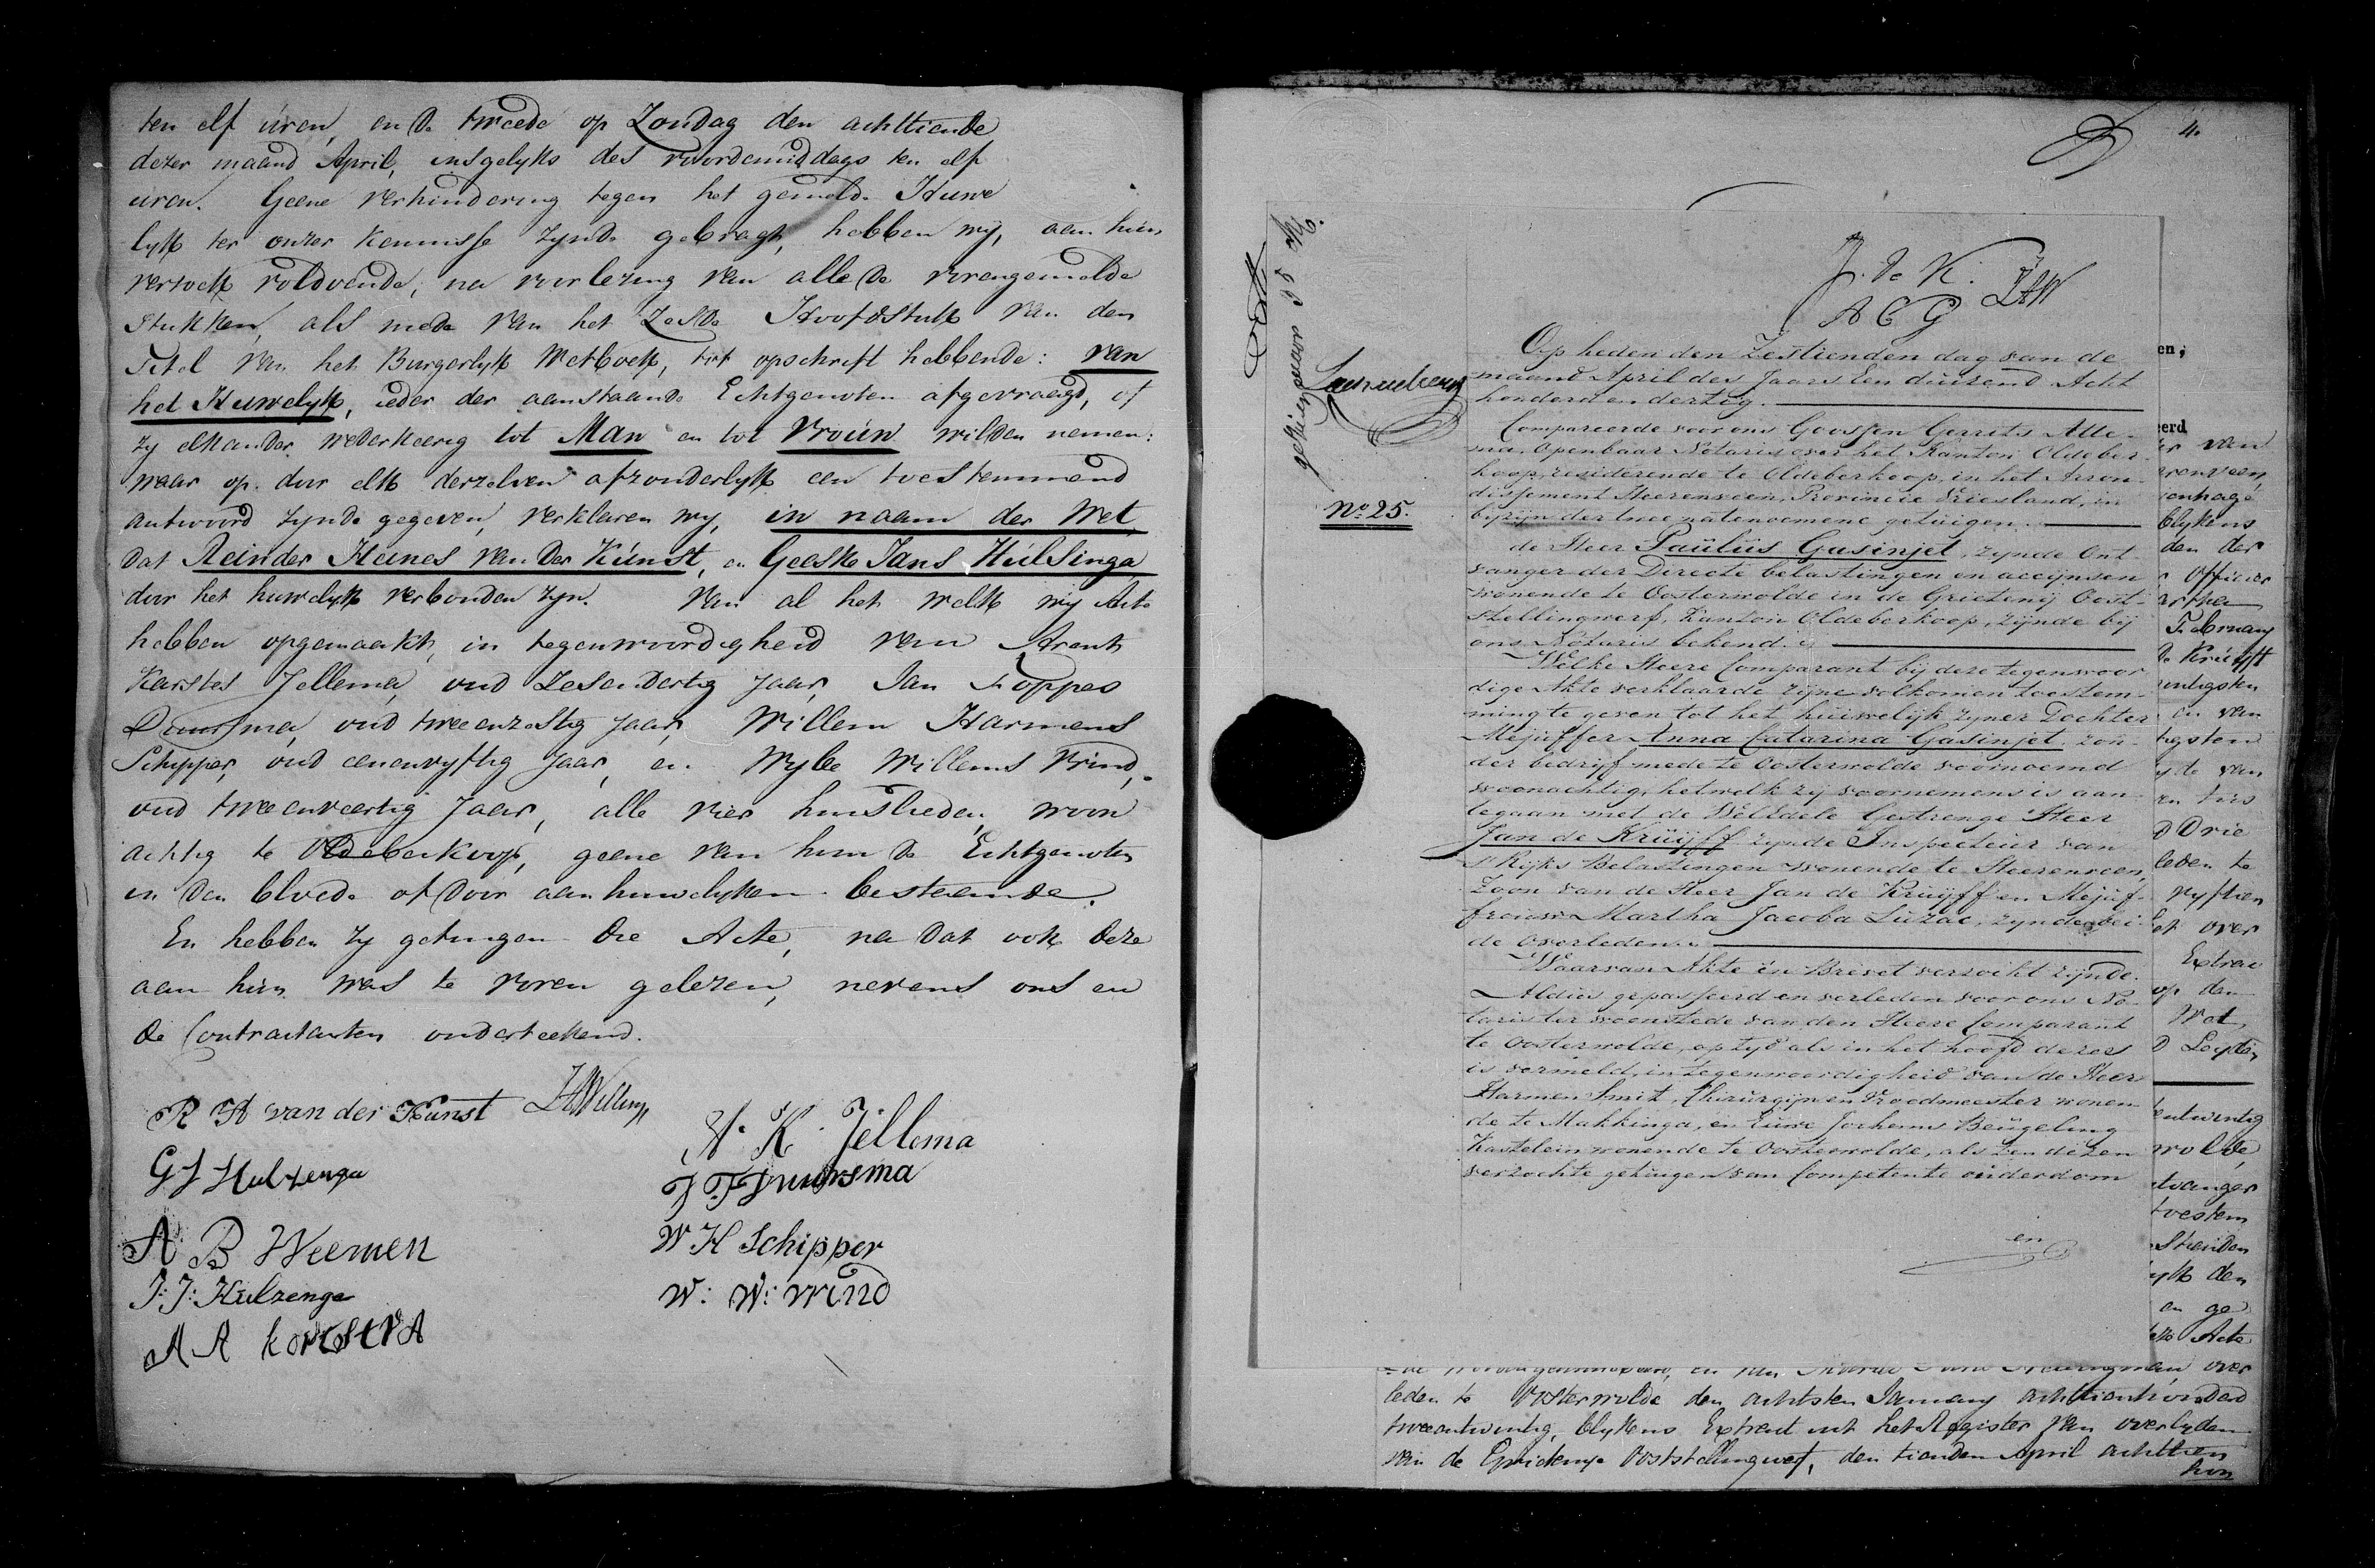 ten elf uren, en de tweede op Zondag den achttiende
dezer maand April, insgelyks des voordemiddags ten elf
uren. Geene verhindering tegen het gemelde Huwe
lyk ter onzer kennisse zynde gebragt, hebben wy, aan hun
verzoek voldoende, na voorlezing van alle de vorengemelde
stukken, als mede van het Zesde Hoofdstuk van den
Titel van het Burgerlyk Wetboek, tot opschrift hebbende: van
het Huwelyk, ieder der aanstaande Echtgenoten afgevraagd, of
zy elkander wederkeerig tot Man en tot Vrouw wilden nemen:
waar op door elk derzelven afzonderlyk een toestemmend
antwoord zynde gegeven, verklaren wy, in naam der Wet,
dat Reinder Heines van der Kunst, en Geeske Jans Hulsinga
door het huwelyk verbonden zyn. Van al het welk wy Acte
hebben opgemaakt, in tegenwoordigheid van Arent
Karstes Jellema, oud zesendertig jaar, Jan Foppes
Duursma, oud tweenzestig jaar, Willem Harmens
Schipper, oud eenenvyftig jaar, en Wybe Willems Vrind,
oud tweenveertig jaar, alle vier huislieden, woon
achtig te Oldeberkoop, geene van hun de Echtgenoten
in den bloede of door aanhuwelyken bestaande.
En hebben zy getuigen die Acte, na dat ook deze
aan hun was te voren gelezen, nevens ons en
de Contractanten onderteekend.
R H van der Kunst
G J Hulzenga
A B Weemen
J: J: Hulzenga
A A korstra
A. K. Jellema
J. F. Duursma
W H Schipper
W: W: vrind
4.
J. de K.
A C G
No. 25.
Op heden den Zestienden dag van de
maand April des Jaars Een duizend Acht
honderd en dertig.
Compareerde voor ons Goossen Gerrits Alle-
ma, Openbaar Notaris over het Kanton Oldeber-
koop, residerende te Oldeberkoop, in het Arron-
dissement Heerenveen, Provincie Vriesland, in
bijzijn der twee natenoemene getuigen.
de Heer Paulus Gasinjet, zynde Ont
vanger der Directe belastingen en accijnsen
wonende te Oosterwolde in de Grietenij Oost-
stellingwerf, Kanton Oldeberkoop, zijnde bij
ons Notaris bekend.
Welke Heere Comparant bij deze tegenwoor
dige Akte verklaarde zijne volkomen toestem-
ming te geven tot het huiwelijk zyner Dochter
Mejuffer Anna Catarina Gasinjet, zon-
der bedrijf mede te Oosterwolde voornoemd
woonachtig, hetwelk zij voornemens is aan-
tegaan met de WelEdele Gestrenge Heer
Jan de Kruijff zynde Inspecteur van
's Rijks Belastingen wonende te Heerenveen,
Zoon van de Heer Jan de Kruijff en Mejuf-
frouw Martha Jacoba Luzac, zynde bei-
de overleden.
Waarvan Akte in Brevet verzocht zijnde.
Aldus gepasseerd en verleden voor ons No-
taris ter woenstede van den Heere Comparant
te Oosterwolde, op tyd als in het hoofd dezes
is vermeld, in tegenwoordigheid van de Heer
Harmen Smit, Chirurgijn en Vroedmeester wonen-
de te Makkinga, en Luwe Jochems Beugeling
Kastelein wonende te Oosterwolde, als ten dezen
verzochte getuigen van Competente ouderdom
en
en;
eerd
van
blykens
den der
Officier
February
de Kruijff
en van
van
D Drie
leden te
vyftien
over
Extrac
op den
Wet,
D Leyden
wolde,
toestem
den
en ge
Acte
over
leden te Oosterwolde den achtsten January achttienhonderd
tweentwintig, blykens Extract uit het Register van overlyden
van de Grietenye Ooststellingwerf, den tienden April achttien
hon